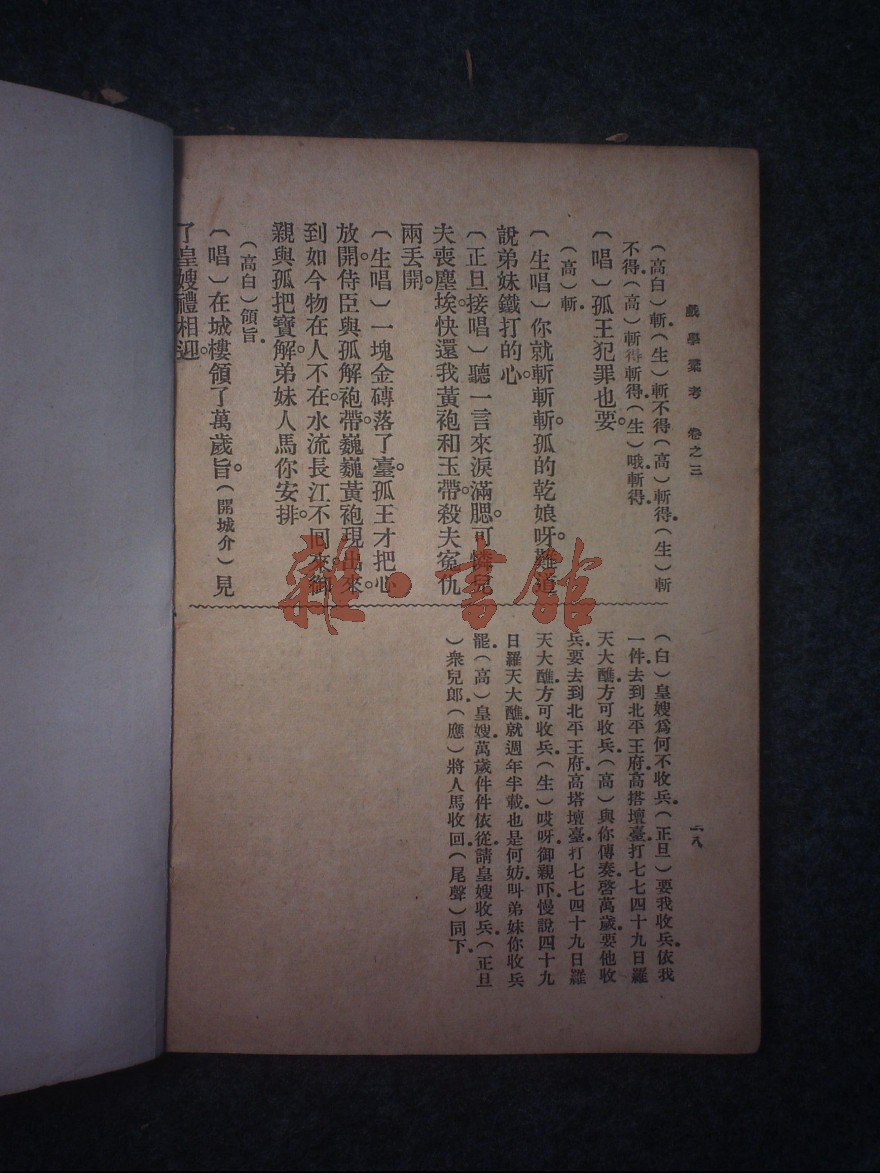 戲學彙考　卷之三
二八
（高白）斬（生）斬不得（高）斬得（生）斬
不得（高）斬得斬得（生）哦斬得
（唱）孤王犯罪也要。
（高）斬
（生唱）你就斬斬斬。孤的乾娘呀。難道
說弟妹鐵打的心。
（正旦接唱）聽一言來淚滿腮。可憐兒
夫喪塵埃。快還我黃袍和玉帶。殺夫寃仇
兩丟開。
（生唱）一塊金磚落了臺。孤王才把心
放開。侍臣與孤解袍帶。巍巍黃袍現出來。
到如今物在人不在。水流長江不回來。御
親與孤把寶解。弟妹人馬你安排。
（高白）領旨
（唱）在城樓領了萬歲旨。（開城介）見
了皇嫂禮相迎。
（白）皇嫂爲何不收兵（正旦）要我收兵依我
一件去到北平王府高搭壇臺打七七四十九日羅
天大醮方可收兵（高）與你傳奏啓萬歲要他收
兵要去到北平王府高塔壇臺打七七四十九日羅
天大醮方可收兵（生）哎呀御親吓慢說四十九
日羅天大醮就週年半載也是何妨叫弟妹你收兵
罷（高）皇嫂萬歲件件依從請皇嫂收兵（正旦
）衆兒郎（應）將人馬收回（尾聲）同下
雜·書館